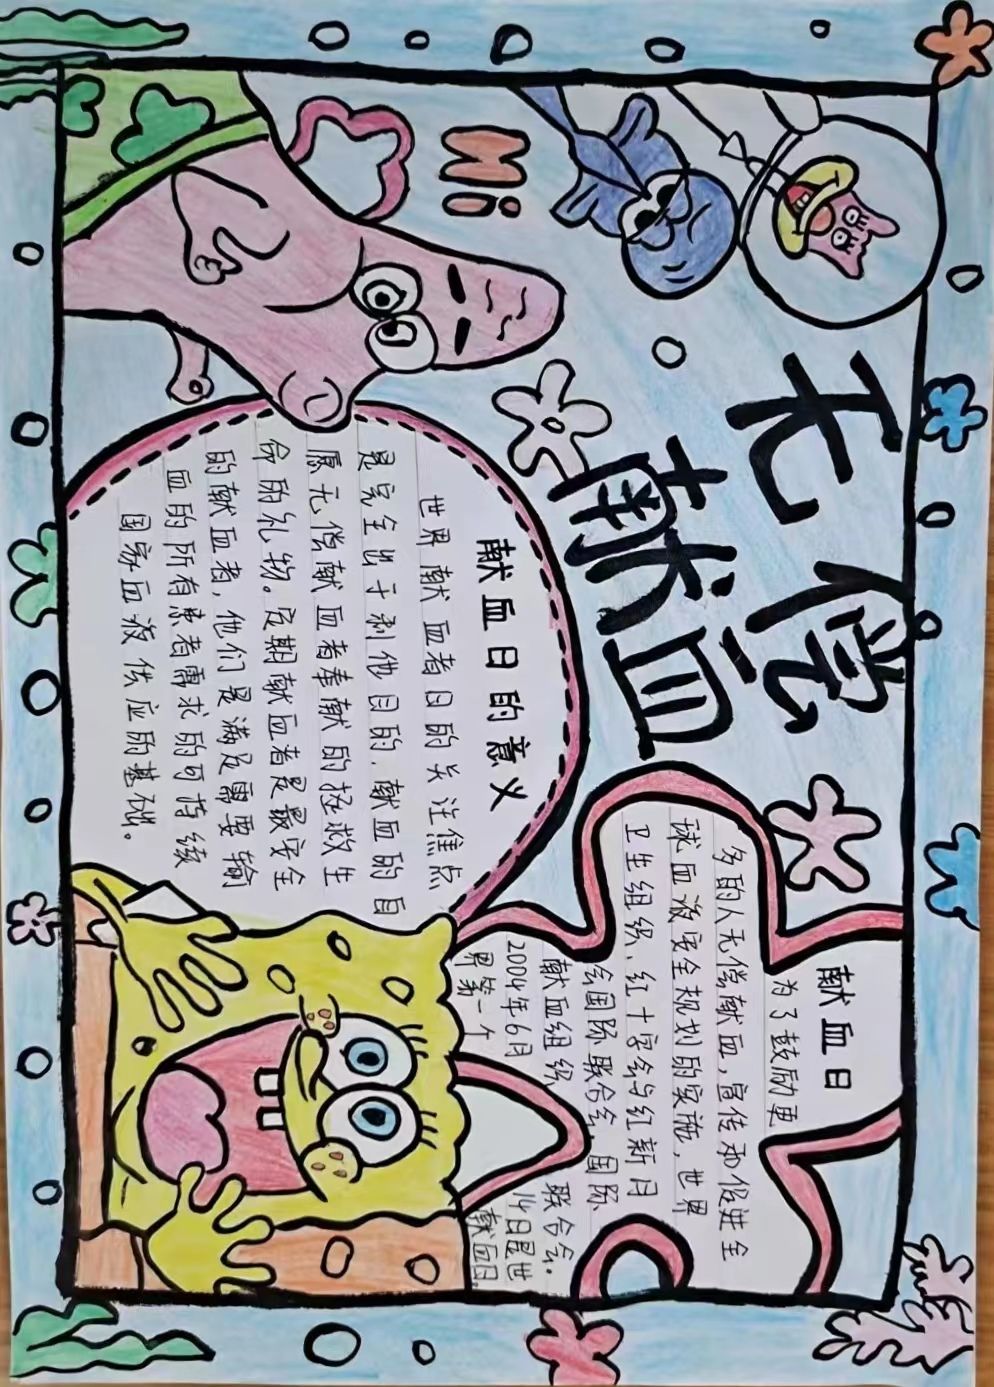 Hi
无偿
献血
献血日的意义
世界献血者日的关注焦点
是完全出于利他目的,献血的自
愿无偿献血者奉献的拯救生
命的礼物。定期献血者是最安全
的献血者,他们是满足需要输
血的所有患者需求的可持续
国家血液供应的基础。
献血日
为了鼓励更
多的人无偿献血,宣传和促进全
球血液安全规划的实施,世界
卫生组织、红十字会与红新月
会国际联合会、国际
献血组织 联合会.
2004年6月 14日是世
界第一个 献血日。